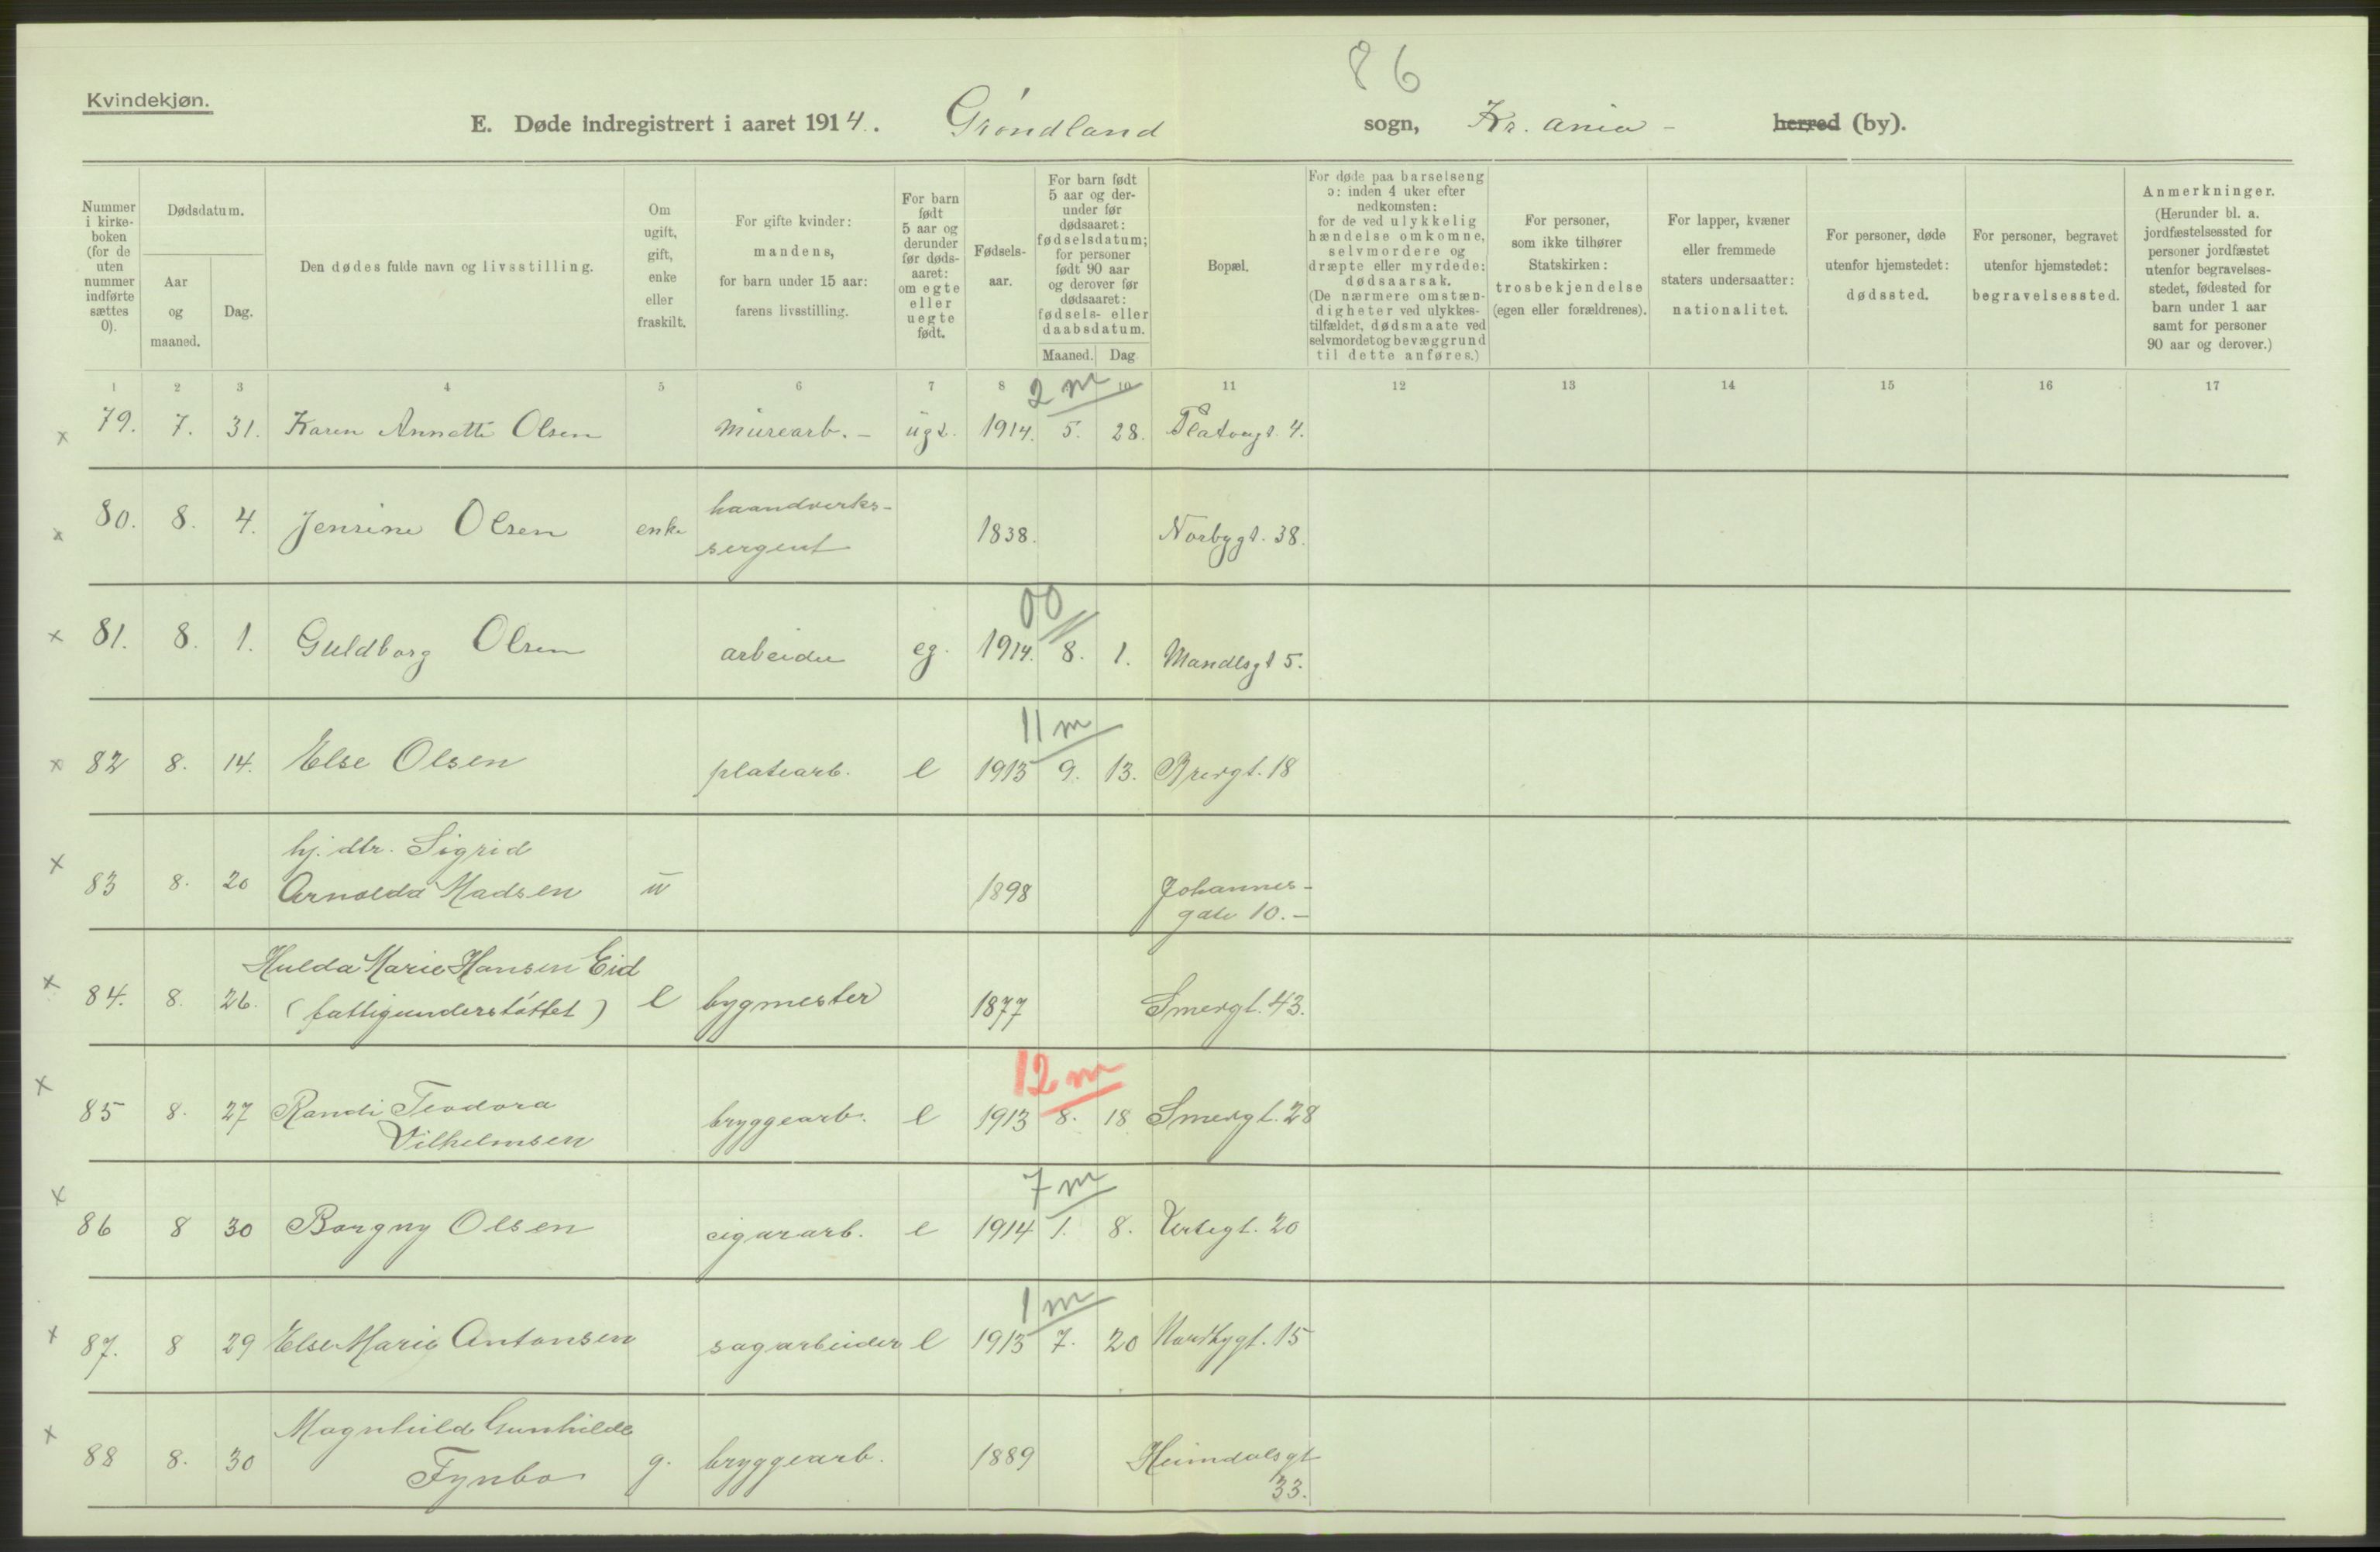 86
Kvindekjøn.
E. Døde indregistrert i aaret 1914. Grøndland sogn, Kr.ania - herred (by).
Nummer i kirke- boken (for de uten nummer indførte sættes 0).
Dødsdatum.
Aar og maaned.
Dag.
Den dødes fulde navn og livsstilling.
Om ugift, gift, enke eller fraskilt.
For gifte kvinder: mandens, for barn under 15 aar: farens livsstilling.
For barn født 5 aar og derunder før døds- aaret: om egte eller uegte født.
Fødsels- aar.
For barn født 5 aar og der- under før dødsaaret: fødselsdatum; for personer født 90 aar og derover før dødsaaret: fødsels- eller daabsdatum.
Maaned. Dag
Bopæl.
For døde paa barselseng ɔ: inden 4 uker efter nedkomsten: for de ved ulykkelig hændelse omkomne, selvmordere og dræpte eller myrdede: dødsaarsak. (De nærmere omstæn- digheter ved ulykkes- tilfældet, dødsmaate ved selvmordet og bevæggrund til dette anføres.)
For personer, som ikke tilhører Statskirken: trosbekjendelse (egen eller forældrenes).
For lapper, kvæner eller fremmede staters undersaatter: nationalitet.
For personer, døde utenfor hjemstedet: dødssted.
For personer, begravet utenfor hjemstedet: begravelsessted.
Anmerkninger. (Herunder bl. a. jordfæstelsessted for personer jordfæstet utenfor begravelses- stedet, fødested for barn under 1 aar samt for personer 90 aar og derover.)
1 2 3 4 5 6 7 8 10 11 12 13 14 15 16 17
2 m
x 79. 7. 31. Karen Annette Olsen murearb. - ugt. 1914. 5. 28. Platougt. 4.
x 80. 8. 4. Jensine Olsen enke haandverks- sergent 1838. Norbygt. 38.
00
x 81. 8. 1. Guldborg Olsen arbeider eg. 1914. 8. 1. Mandlsgt 5.
11 m
x 82 8. 14. Else Olsen platearb. e 1913 9. 13. Breigt. 18
x 83 8. 20 hj. dtr. Sigrid Arnolda Madsen u 1898 Johannes- gate 10. -
x 84. 8. 26. Hulda Marie Hansen Eid (fattigunderstøttet) e bygmester 1877 Smergt. 43.
12 m
x 85 8. 27 Randi Teodora Vilhelmsen bryggearb. e 1913 8. 18 Smergt. 28
7 m
x 86 8 30 Borgny Olsen cigararb. e 1914 1. 8. Urtegt. 20
1 m
x 87. 8 29 Else Marie Antonsen sagarbeider e 1913 7. 20 Nordbygt. 15
x 88 8. 30 Magnhild Gunhilde Fynbo g. bryggearb. 1889 Heimdalsgt 33.